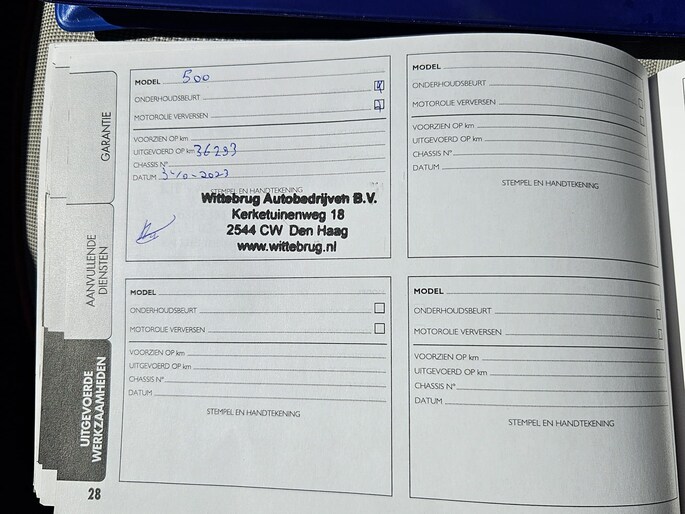 GARANTIE
AANVULLENDE
DIENSTEN
UITGEVOERDE
WERKZAAMHEDEN
28
MODEL 500
ONDERHOUDSBEURT
MOTOROLIE VERVERSEN
VOORZIEN OP km
UITGEVOERD OP km 36233
CHASSIS N°
DATUM 3-10-2023
STEMPEL EN HANDTEKENING
Wittebrug Autobedrijven B.V.
Kerketuinenweg 18
2544 CW Den Haag
www.wittebrug.nl
MODEL
ONDERHOUDSBEURT
MOTOROLIE VERVERSEN
VOORZIEN OP km
UITGEVOERD OP km
CHASSIS N°
DATUM
STEMPEL EN HANDTEKENING
MODEL
ONDERHOUDSBEURT
MOTOROLIE VERVERSEN
VOORZIEN OP km
UITGEVOERD OP km
CHASSIS N°
DATUM
STEMPEL EN HANDTEKENING
MODEL
ONDERHOUDSBEURT
MOTOROLIE VERVERSEN
VOORZIEN OP km
UITGEVOERD OP km
CHASSIS N°
DATUM
STEMPEL EN HANDTEKENING